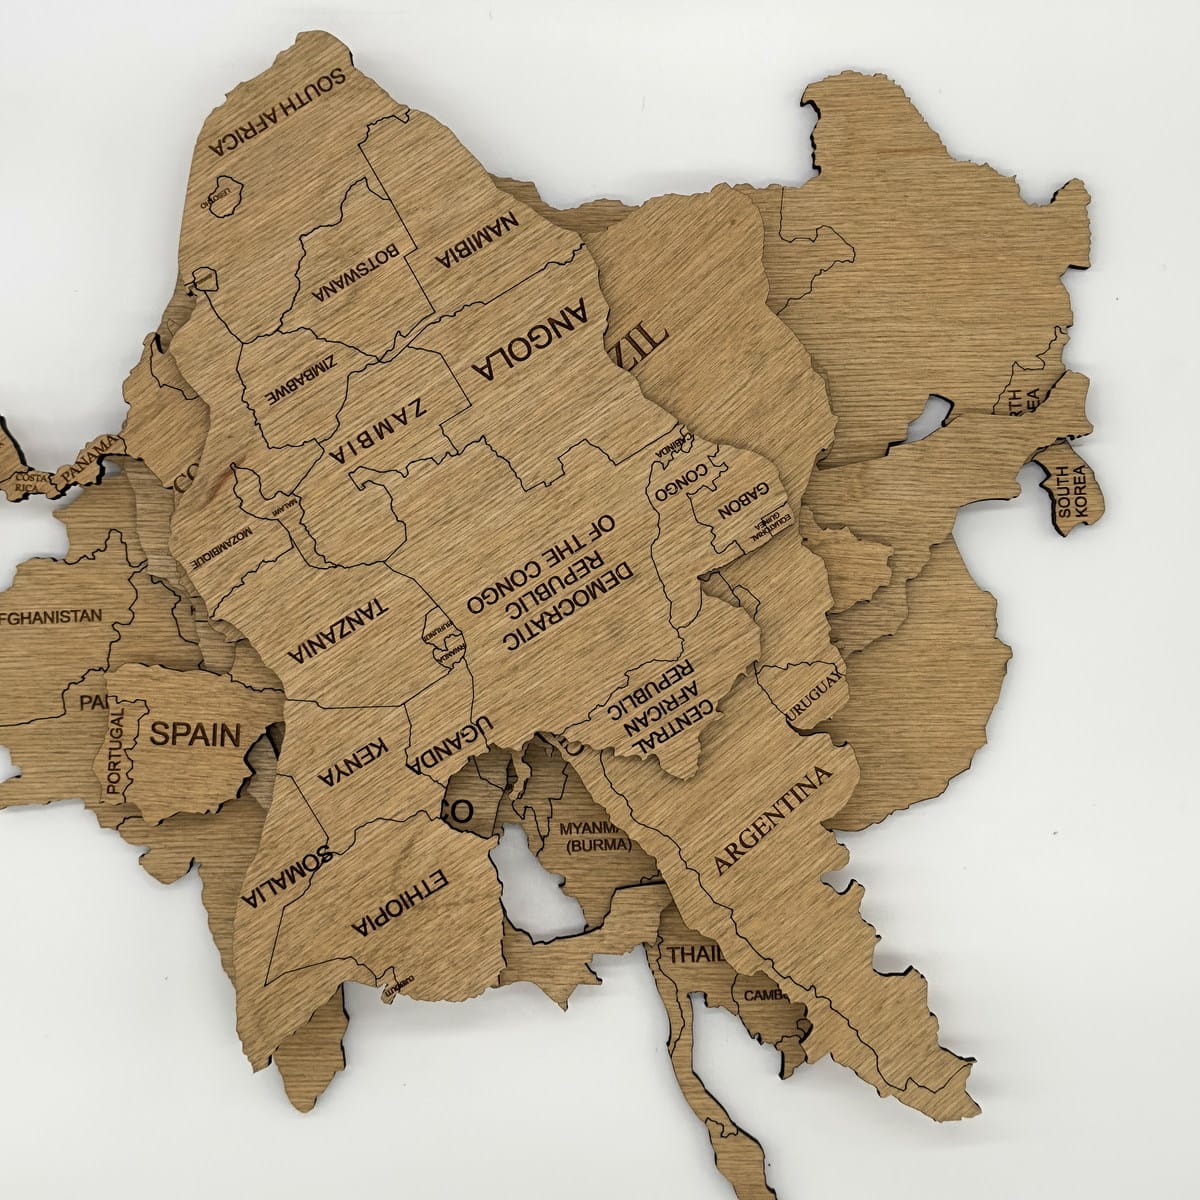 SOUTH AFRICA
LESOTHO
NAMIBIA
BOTSWANA
ANGOLA
ZIMBABWE
ZAMBIA
CABINDA
CONGO
GABON
EQUATORIAL
GUINEA
MALAWI
MOZAMBIQUE
DEMOCRATIC
REPUBLIC
OF THE CONGO
TANZANIA
BURUNDI
RWANDA
CENTRAL
AFRICAN
REPUBLIC
UGANDA
KENYA
SOMALIA
ETHIOPIA
DJIBOUTI
ZIL
TH
EA
SOUTH
KOREA
PANAMA
COSTA
RICA
CO
FGHANISTAN
PA
PORTUGAL
SPAIN
CO
URUGUAY
ARGENTINA
MYANMA
(BURMA)
THAIL
CAMB